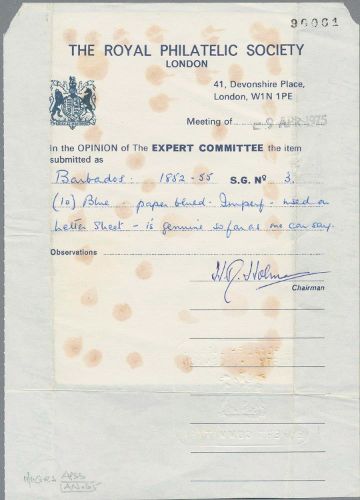 90001
THE ROYAL PHILATELIC SOCIETY
LONDON
41, Devonshire Place,
London, W1N 1PE
Meeting of 9 APR 1975
In the OPINION of The EXPERT COMMITTEE the item
submitted as
Barbados. 1852-55 S.G. Nº 3.
(1d) Blue - paper blued. Imperf - used on
Letter Sheet - is genuine so far as one can say.
Observations
H.R. Holmes
Chairman